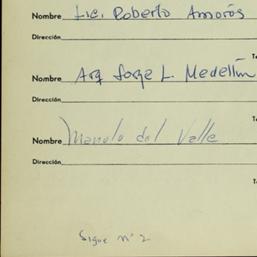 Nombre Lic. Roberto Amorós
Dirección
Nombre Arq Jorge L. Medellín
Dirección
Nombre Manolo del Valle
Dirección
Sigue nº 2